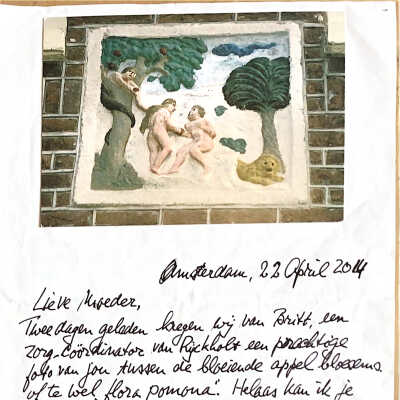 Amsterdam, 22 April 2014
Lieve Moeder,
Twee dagen geleden kregen wij van Britt, een
zorg-coördinator van Rijckholt een prachtige
foto van jou tussen de bloeiende appel bloesems
of te wel „flora pomona". Helaas kan ik je